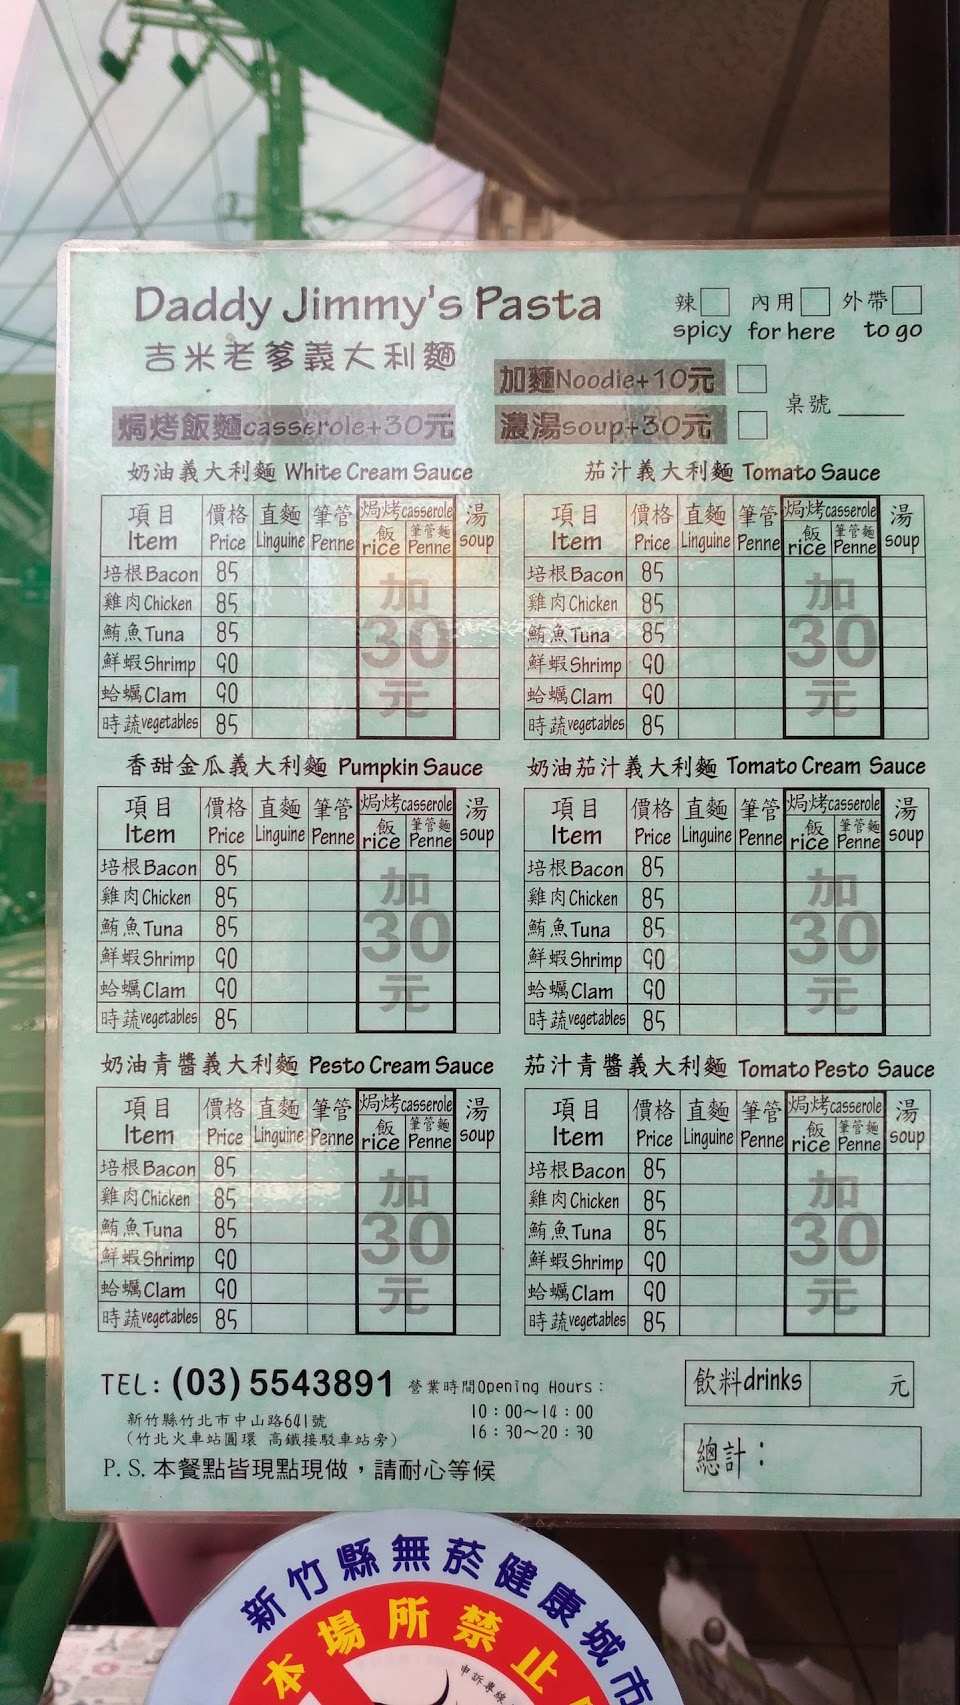 Daddy Jimmy's Pasta
吉米老爹義大利麵
辣 內用 外帶
spicy for here to go
加麵Noodle+10元
桌號
焗烤飯麵casserole+30元 濃湯soup+30元
奶油義大利麵 White Cream Sauce
項目 價格 直麵 筆管 焗烤casserole 湯
Item Price Linguine Penne 飯 rice 筆管麵 Penne soup
培根Bacon 85
雞肉Chicken 85
鮪魚Tuna 85
鮮蝦Shrimp 90
蛤蠣Clam 90
時蔬vegetables 85
加
30
元
茄汁義大利麵 Tomato Sauce
項目 價格 直麵 筆管 焗烤casserole 湯
Item Price Linguine Penne 飯 rice 筆管麵 Penne soup
培根Bacon 85
雞肉Chicken 85
鮪魚Tuna 85
鮮蝦Shrimp 90
蛤蠣Clam 90
時蔬vegetables 85
加
30
元
香甜金瓜義大利麵 Pumpkin Sauce
項目 價格 直麵 筆管 焗烤casserole 湯
Item Price Linguine Penne 飯 rice 筆管麵 Penne soup
培根Bacon 85
雞肉Chicken 85
鮪魚Tuna 85
鮮蝦Shrimp 90
蛤蠣Clam 90
時蔬vegetables 85
加
30
元
奶油茄汁義大利麵 Tomato Cream Sauce
項目 價格 直麵 筆管 焗烤casserole 湯
Item Price Linguine Penne 飯 rice 筆管麵 Penne soup
培根Bacon 85
雞肉Chicken 85
鮪魚Tuna 85
鮮蝦Shrimp 90
蛤蠣Clam 90
時蔬vegetables 85
加
30
元
奶油青醬義大利麵 Pesto Cream Sauce
項目 價格 直麵 筆管 焗烤casserole 湯
Item Price Linguine Penne 飯 rice 筆管麵 Penne soup
培根Bacon 85
雞肉Chicken 85
鮪魚Tuna 85
鮮蝦Shrimp 90
蛤蠣Clam 90
時蔬vegetables 85
加
30
元
茄汁青醬義大利麵 Tomato Pesto Sauce
項目 價格 直麵 筆管 焗烤casserole 湯
Item Price Linguine Penne 飯 rice 筆管麵 Penne soup
培根Bacon 85
雞肉Chicken 85
鮪魚Tuna 85
鮮蝦Shrimp 90
蛤蠣Clam 90
時蔬vegetables 85
加
30
元
TEL: (03) 5543891 營業時間Opening Hours：
10：00～14：00
16：30～20：30
新竹縣竹北市中山路641號
(竹北火車站圓環 高鐵接駁車站旁)
P.S.本餐點皆現點現做，請耐心等候
飲料drinks 元
總計：
新竹縣無菸健康城市
本場所禁止
申訴專線